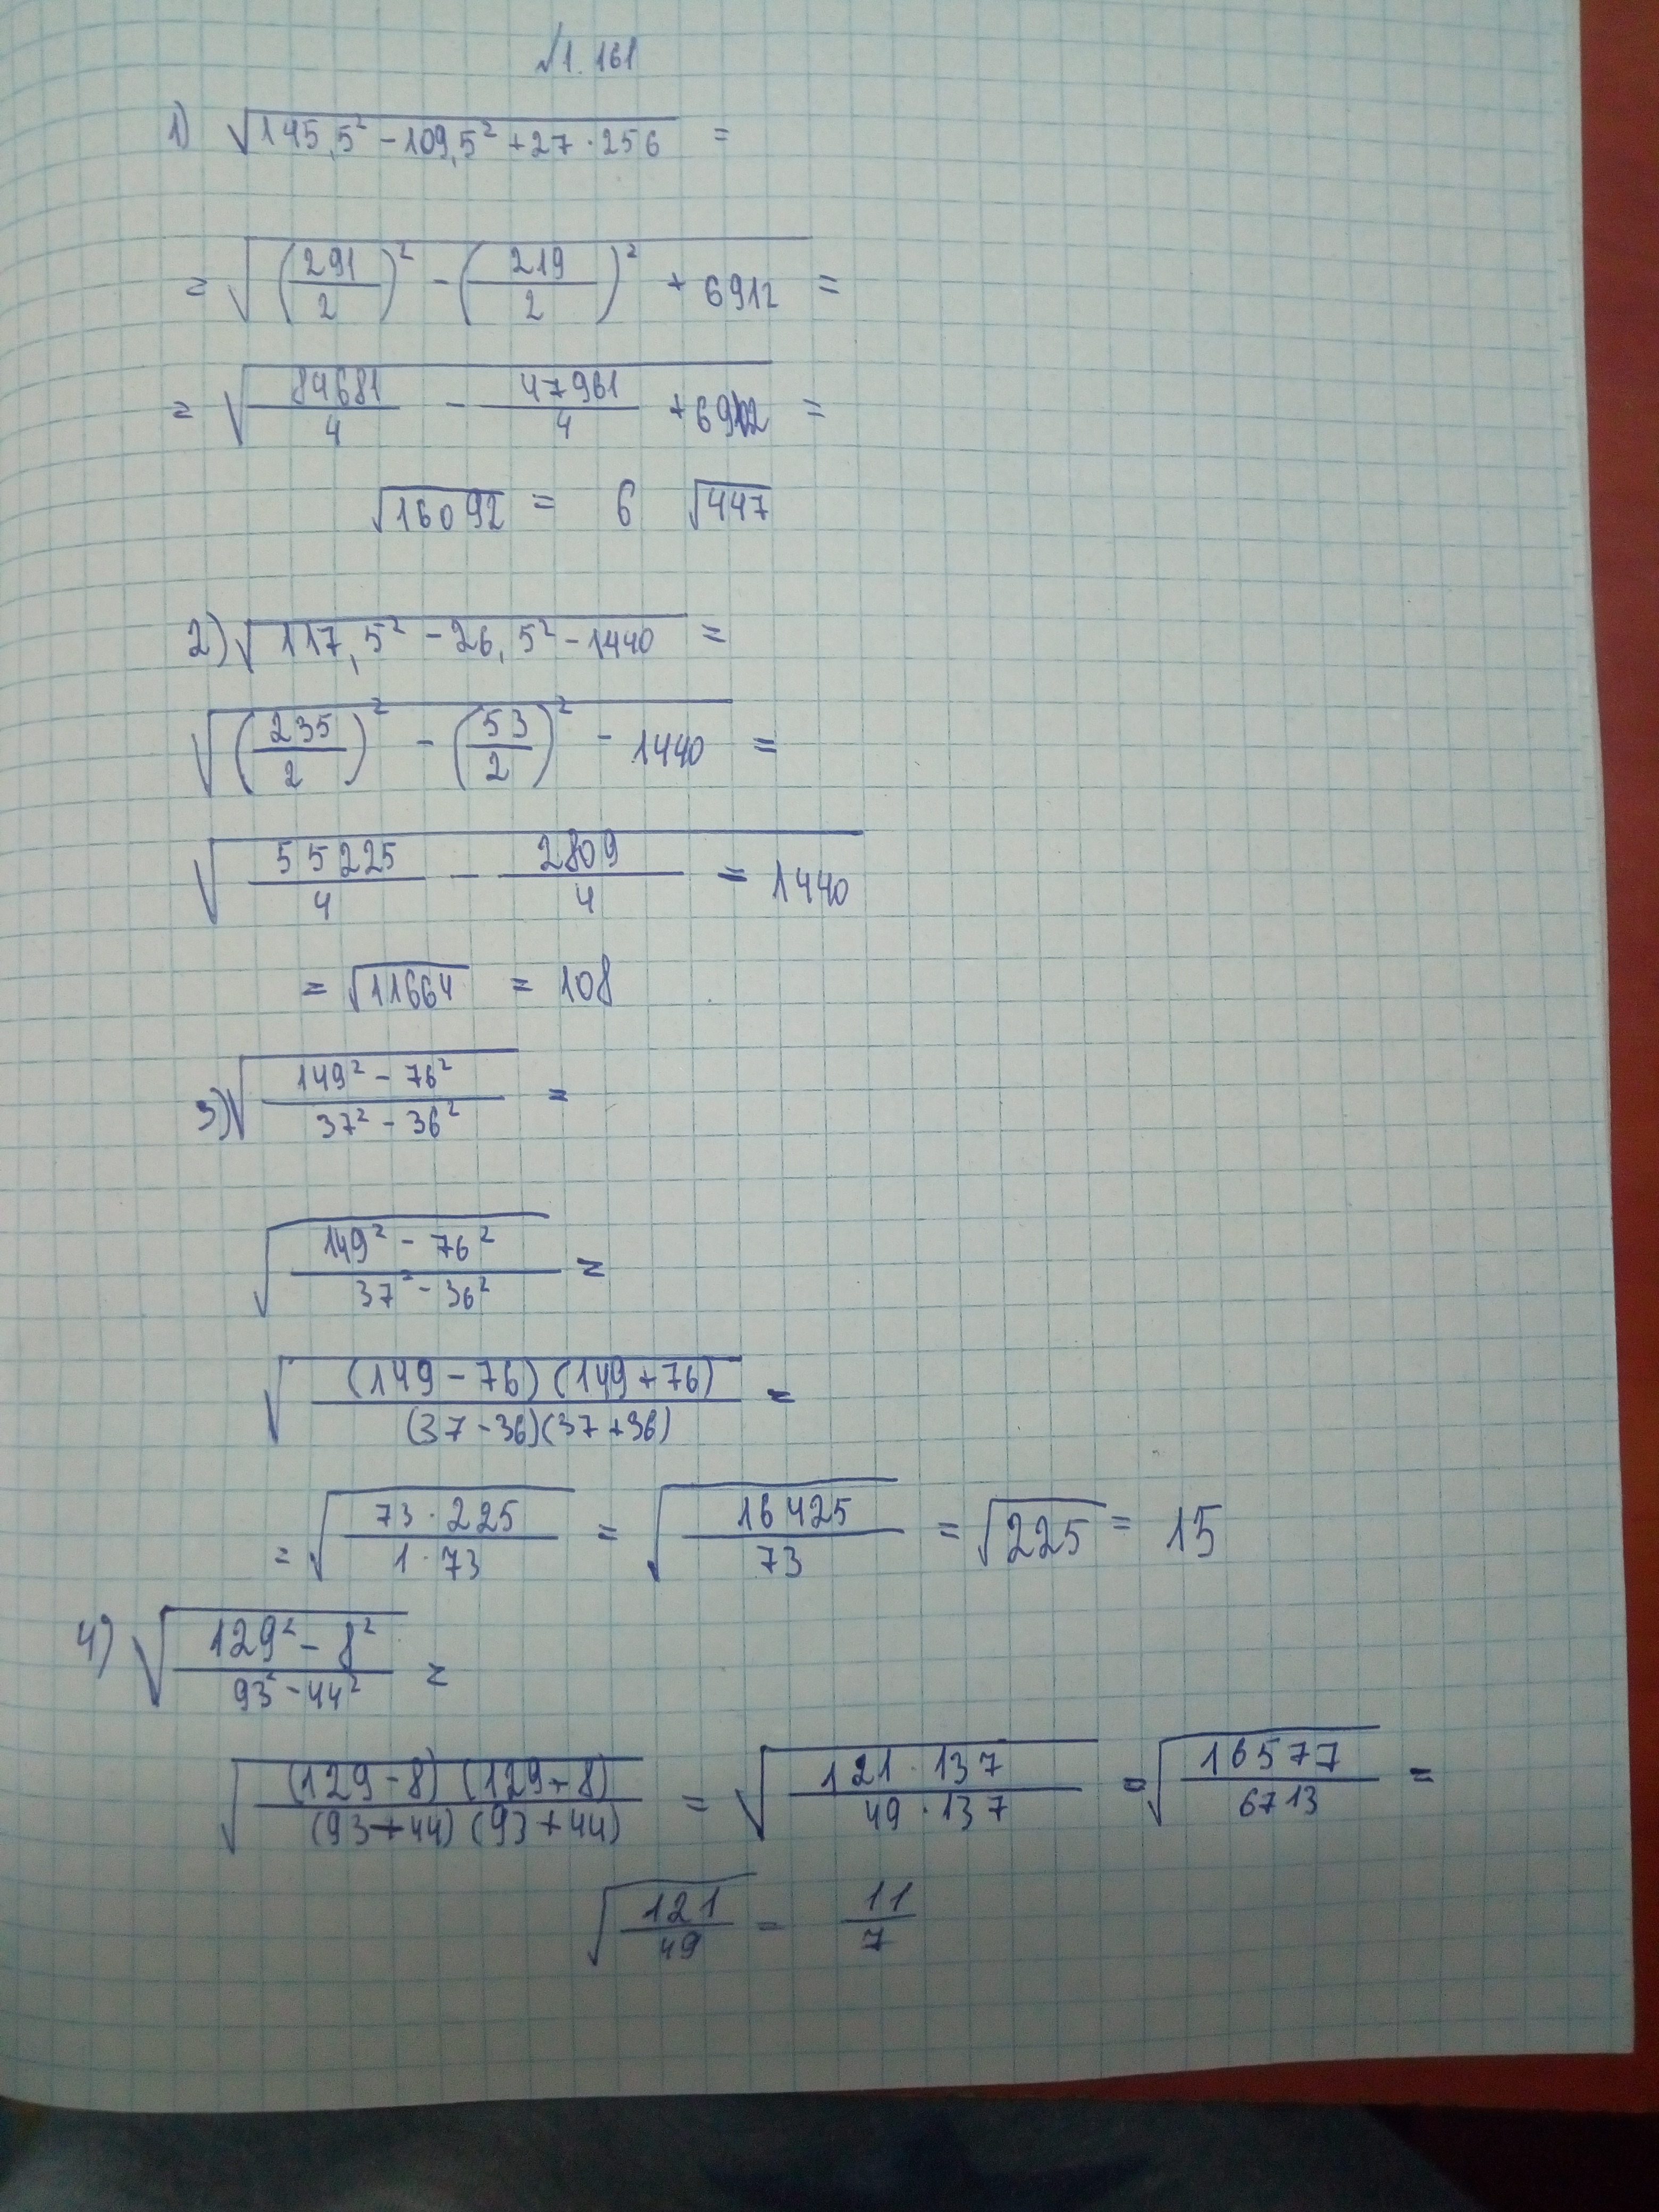 √1.161
1) √(145,5² - 109,5² + 27 · 256) =
= √((291/2)² - (219/2)² + 6912) =
= √(84681/4 - 47961/4 + 6912) =
√16092 = 6 √447
2) √(117,5² - 26,5² - 1440) =
√((235/2)² - (53/2)² - 1440) =
√(55225/4 - 2809/4 = 1440)
= √11664 = 108
3) √((149² - 76²)/(37² - 36²)) =
√((149² - 76²)/(37² - 36²)) =
√((149 - 76)(149 + 76)/(37 - 36)(37 + 36)) =
= √(73 · 225/1 · 73) = √(16425/73) = √225 = 15
4) √((129² - 8²)/(93² - 44²)) =
√((129 - 8)(129 + 8)/(93 + 44)(93 + 44)) = √(121 · 137/49 · 137) = √(16577/6713) =
√(121/49) = 11/7